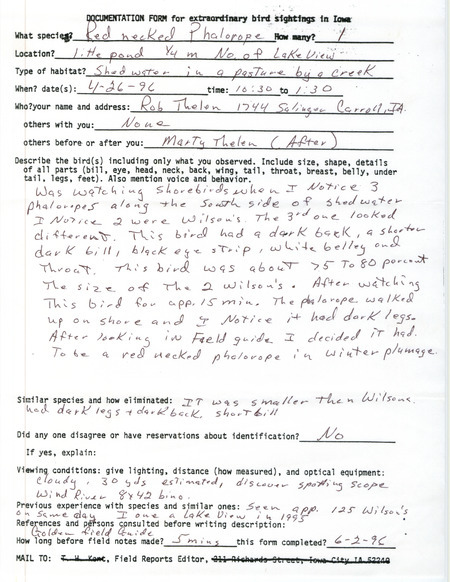 DOCUMENTATION FORM for extraordinary bird sightings in Iowa
What species? Red necked Phalorope How many? 1
Location? 1:He pond 1/4 m No. of Lake View
Type of habitat? Shed water in a pasture by a creek
When? date(s): 4-26-96 time: 10:30 to 1:30
Who? your name and address: Rob Thelen 1744 Salinger Carroll, IA.
others with you: None
others before or after you: Marty Thelen (After)
Describe the bird(s) including only what you observed. Include size, shape, details
of all parts (bill, eye, head, neck, back, wing, tail, throat, breast, belly, under
tail, legs, feet). Also mention voice and behavior.
Was watching shorebirds when I Notice 3
phaloropes along the South side of shed water
I Notice 2 were Wilson's. The 3rd one looked
different. This bird had a dark back, a shorter
dark bill, black eye strip, white belley and
Throat. This bird was about 75 To 80 percent
The size of The 2 Wilson's. After watching
This bird for app. 15 min. The phalorope walked
up on shore and I Notice it had dark legs.
After looking in Faeld guide I decided it had.
To be a red necked phalorope in winter plumage.
Similar species and how eliminated: IT was smaller then Wilsons.
had dark legs + dark back, short bill
Did any one disagree or have reservations about identification? No
If yes, explain:
Viewing conditions: give lighting, distance (how measured), and optical equipment:
Cloudy, 30 yds estimated, discover spotting scope
Wind River 8x42 bino.
Previous experience with species and similar ones: Seen app. 125 Wilson's
on same day I one a Lake View in 1995
References and persons consulted before writing description:
Golden Field Guide
How long before field notes made? 5 mins this form completed? 6-2-96
MAIL TO: T. H. Kent, Field Reports Editor, 211 Richards Street, Iowa City IA 52240